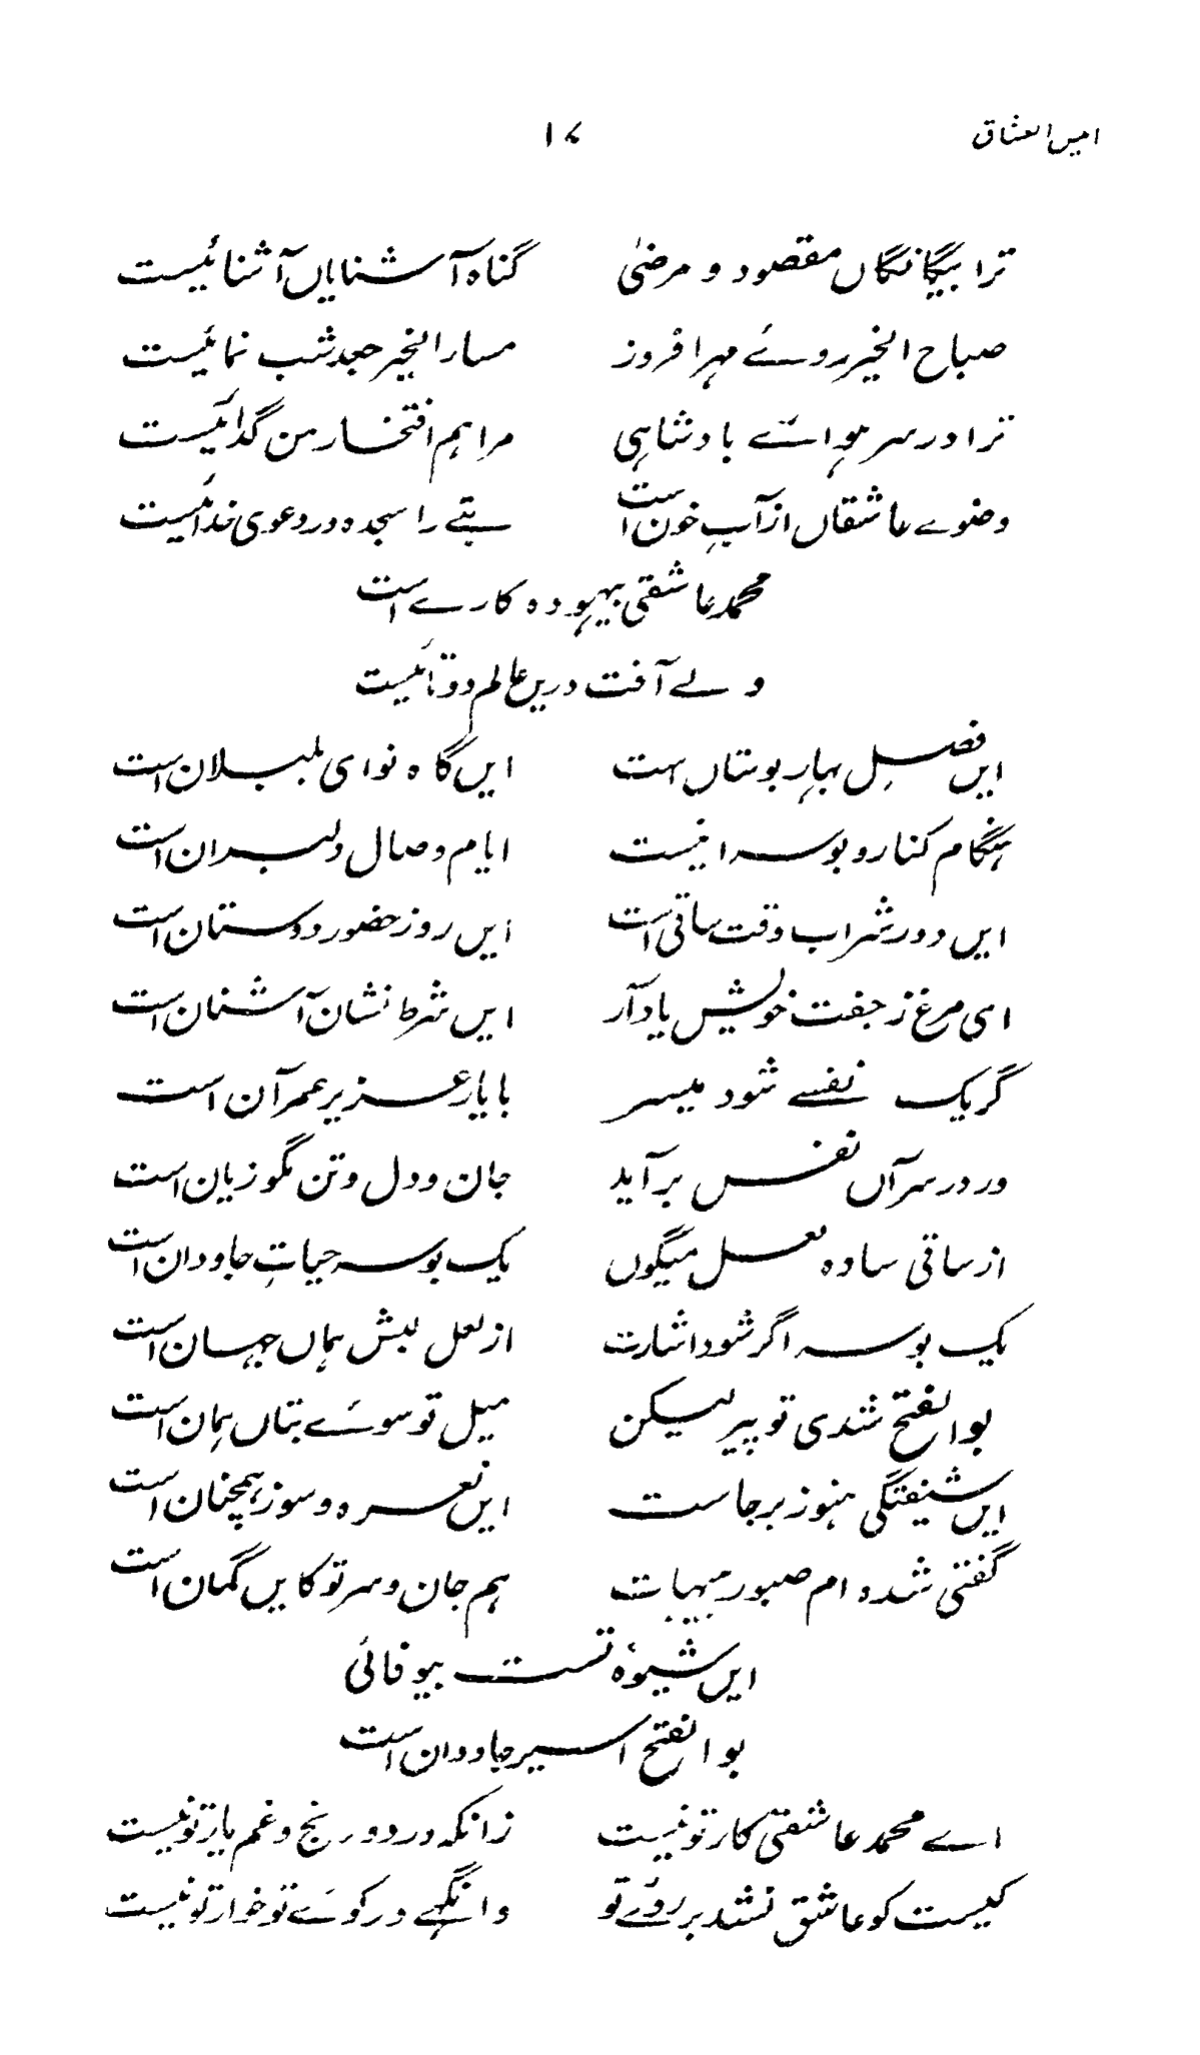 انیس العشاق ۱۷
ترا بیگانگاں مقصود و مرضیٰ گناه آشنایاں آشنائیست
صباح الخیر روئے مہر افروز مساء الخیر جعد شب نمائیست
ترا در سر ہوائے بادشاہی مرا ہم افتخار من گدائیست
وضوے عاشقاں از آبِ خون است بتے را سجدہ در دعوی خدائیست
محمد عاشقی بیہودہ کارے است
ولے آفت دریں عالم دوتائیست
ایں فصلِ بہارِ بوستاں ہست ایں گاہ نوای بلبلان است
ہنگام کنار و بوسہ اینست ایام وصال دلبران است
ایں دور شراب وقت ساقی است ایں روز حضور دوستان است
ای مرغ ز جفت خویش یاد آر ایں شرط نشان آشنان است
گر یک نفسے شود میسر با یار عزیز عمر آن است
ور در سر آں نفس برآید جان و دل و تن مگو زیان است
از ساقی سادہ لعل میگوں یک بوسہ حیاتِ جاودان است
یک بوسہ اگر شود اشارت از لعل لبش ہماں جہان است
بوالفتح شدی تو پیر لیکن میل تو سوئے بتاں ہمان است
ایں شیفتگی ہنوز برجاست ایں نعرہ و سوز ہمچنان است
گفتی شدہ ام صبور ہیہات ہم جان و سر تو کایں گمان است
ایں شیوۂ تست بیوفائی
بوالفتح اسیر جاودان است
اے محمد عاشقی کار تو نیست زانکہ درد و رنج و غم یار تو نیست
کیست کو عاشق نشد بر روئے تو وانگہے در کوئے تو خوار تو نیست